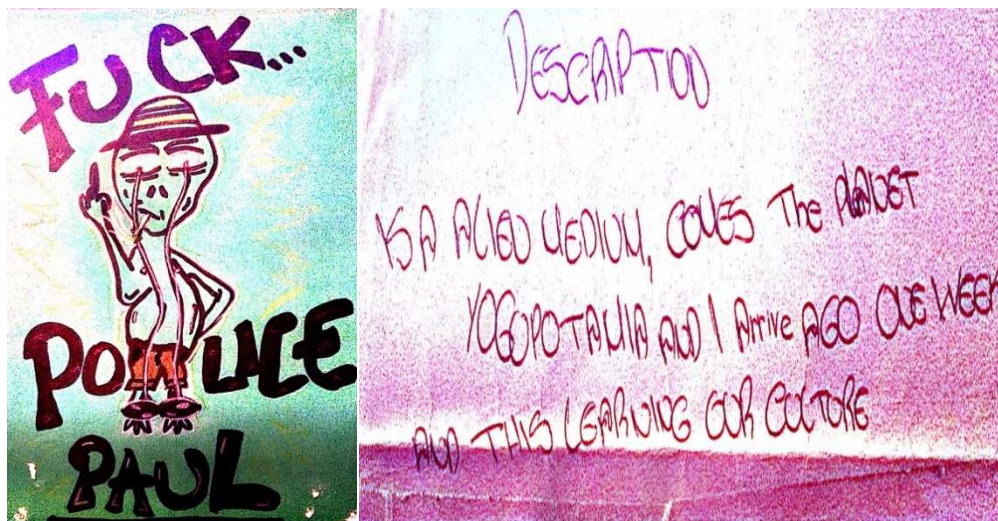 FUCK...
POLICE
PAUL
DESCRIPTION
IS A ALIEN MEDIUM, COMES The PLANET
YOGOPOTAMIA AND I Arrive AGO ONE WEEK
AND THIS LEARNING OUR CULTURE